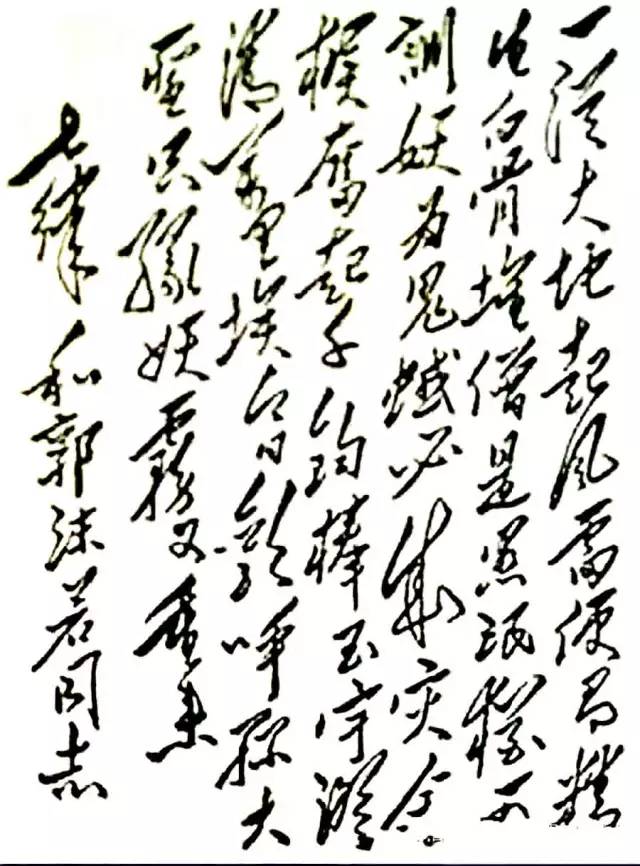 一從大地起风雷便有精
生白骨堆僧是愚氓猶可
訓妖为鬼蜮必成灾金
猴奮起千鈞棒玉宇澄
清萬里埃今日歡呼孫大
聖只緣妖霧又重来
七律 和郭沫若同志